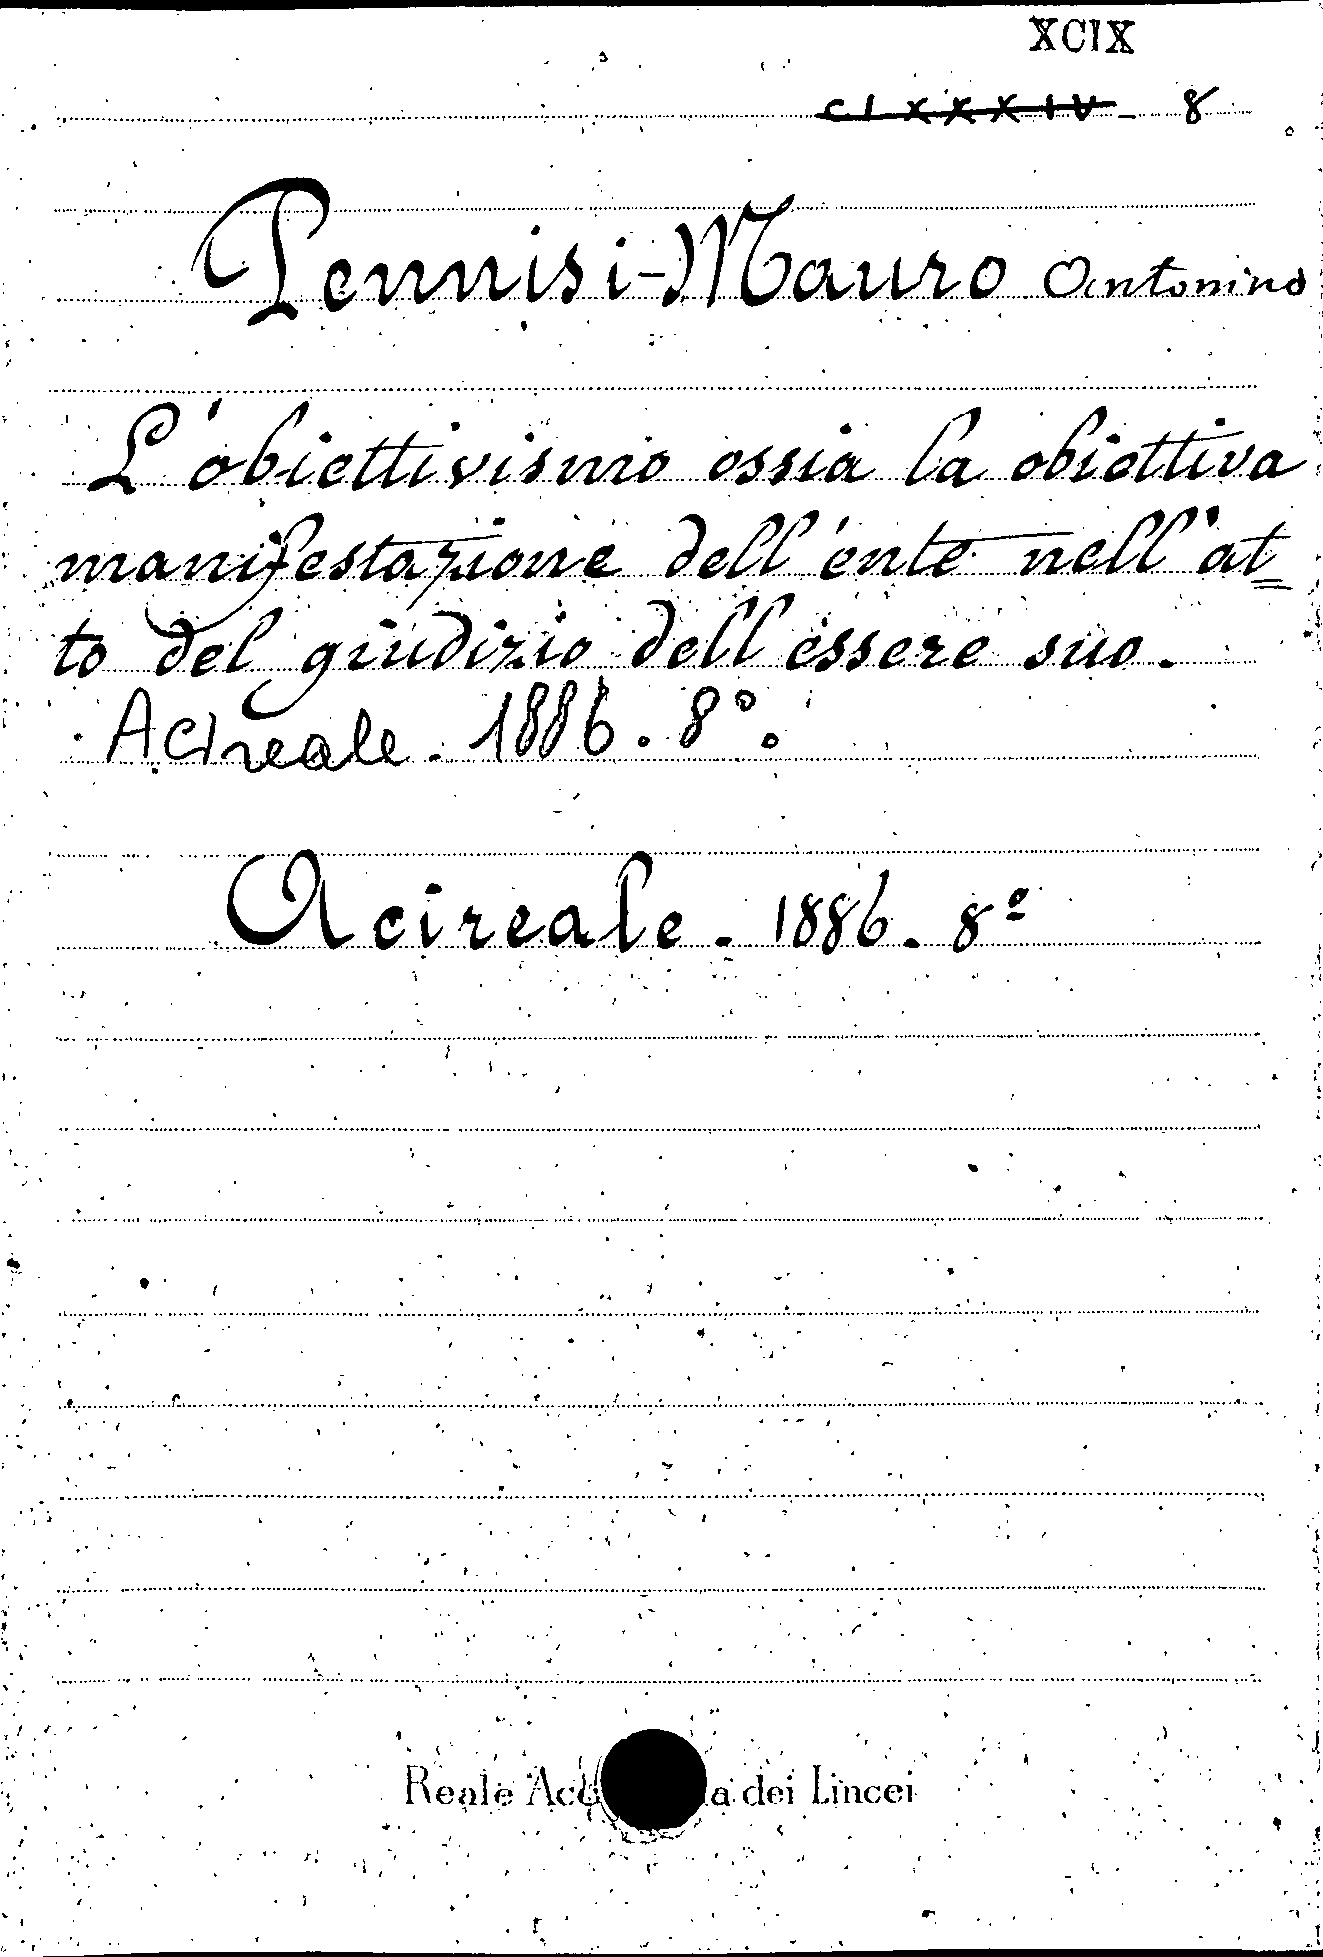 XCIX
CLXXXIV - 8
Pennisi-Mauro Antonino
L'obiettivismo ossia la obiettiva
manifestazione dell'ente nell'at=
to del giudizio dell'essere suo.
Acireale. 1886. 8°.
Acireale. 1886. 8º
Reale Acc a dei Lincei